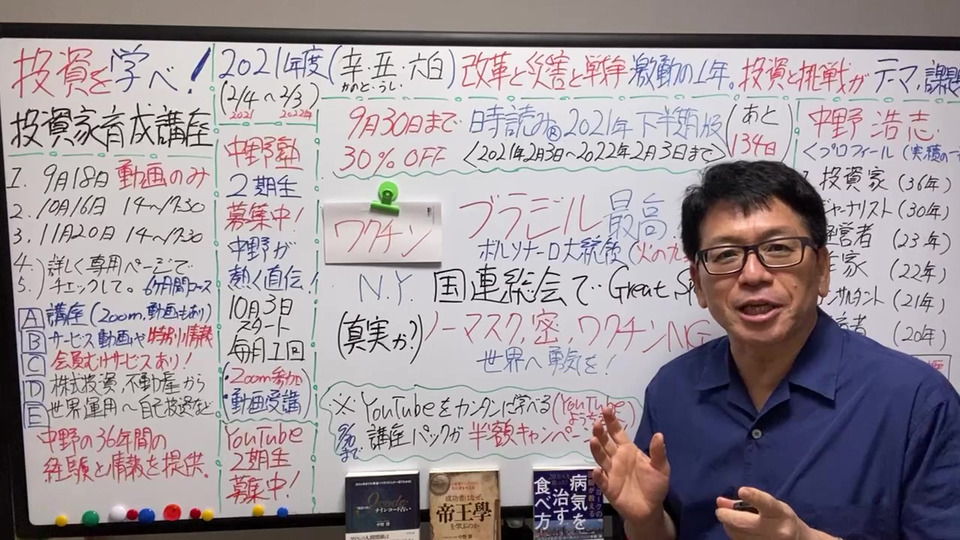 投資を学べ!
投資家育成講座
1. 9月18日 動画のみ
2. 10月16日 14〜17:30
3. 11月20日 14〜17:30
4. 詳しく専用ページで
5. チェックして。6ヶ月間コース
A 講座(Zoom,動画もあり)
B サービス動画や特別小情報
C 会員むけサービスあり!
D 株式投資、不動産から
E 世界運用へ自己投資など
中野の36年間の
経験と情報を提供。
2021年度(辛丑・六白)改革と災害と戦争 激動の1年。投資と挑戦がテマ,課題
かのと・うし
(2/4〜2/3)
2021 2022年
中野塾
2期生
募集中!
中野が
熱く直伝!
10月3日
スタート
毎月1回
・Zoom参加
・動画受講
YouTube
2期生
募集中!
9月30日まで
30%OFF
時読み® 2021年下半期版
<2021年2月3日〜2022年2月3日まで>
(あと
134日
ワクチン
ブラジル 最高
ボルソナーロ大統領(火の九
N.Y. 国連総会で・Great Sp
(真実か?)ノーマスク,密,ワクチンNG
世界へ勇気を!
※YouTubeをカンタンに学べる(YouTube
講座パックが 半額キャンペーン
まで
中野 浩志
<プロフィール(実積の
投資家(36年)
ジャーナリスト(30年)
経営者(23年)
作家(22年)
コンサルタント(21年)
(20年)
ナインコード占い
成功者はなぜ、
帝王學
を学ぶのか
病気を
治す
食べ方